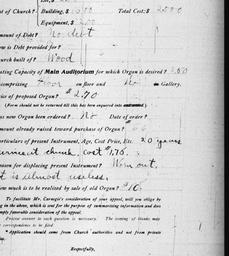 of Church? Building, $ Total Cost: $2000
Equipment, $200
mount of Debt? No debt
ow is Debt provided for?
urch built of? Wood
ating Capacity of Main Auditorium for which Organ is desired? 250
comprising Floor on floor and No in Gallery.
rice of proposed Organ?
(Form should not be returned till this has been enquired into
as new Organ been ordered? No Date of order?
mount already raised toward purchase of Organ?
articulars of present Instrument, Age, Cost Price, Etc. 20 years
Cost $175.
eason for displacing present Instrument? Worn out.
t is almost useless.
ow much is to be realized by sale of old Organ? $10
To facilitate Mr. Carnegie's consideration of your appeal, will you oblige by
ng in the above, which is sent for the purpose of summarizing information and does
imply favorable consideration of the appeal.
Precise answer to each question is necessary. The
r correspondence to be filed
Application should come from Church authorities and not from private
Respectfully,